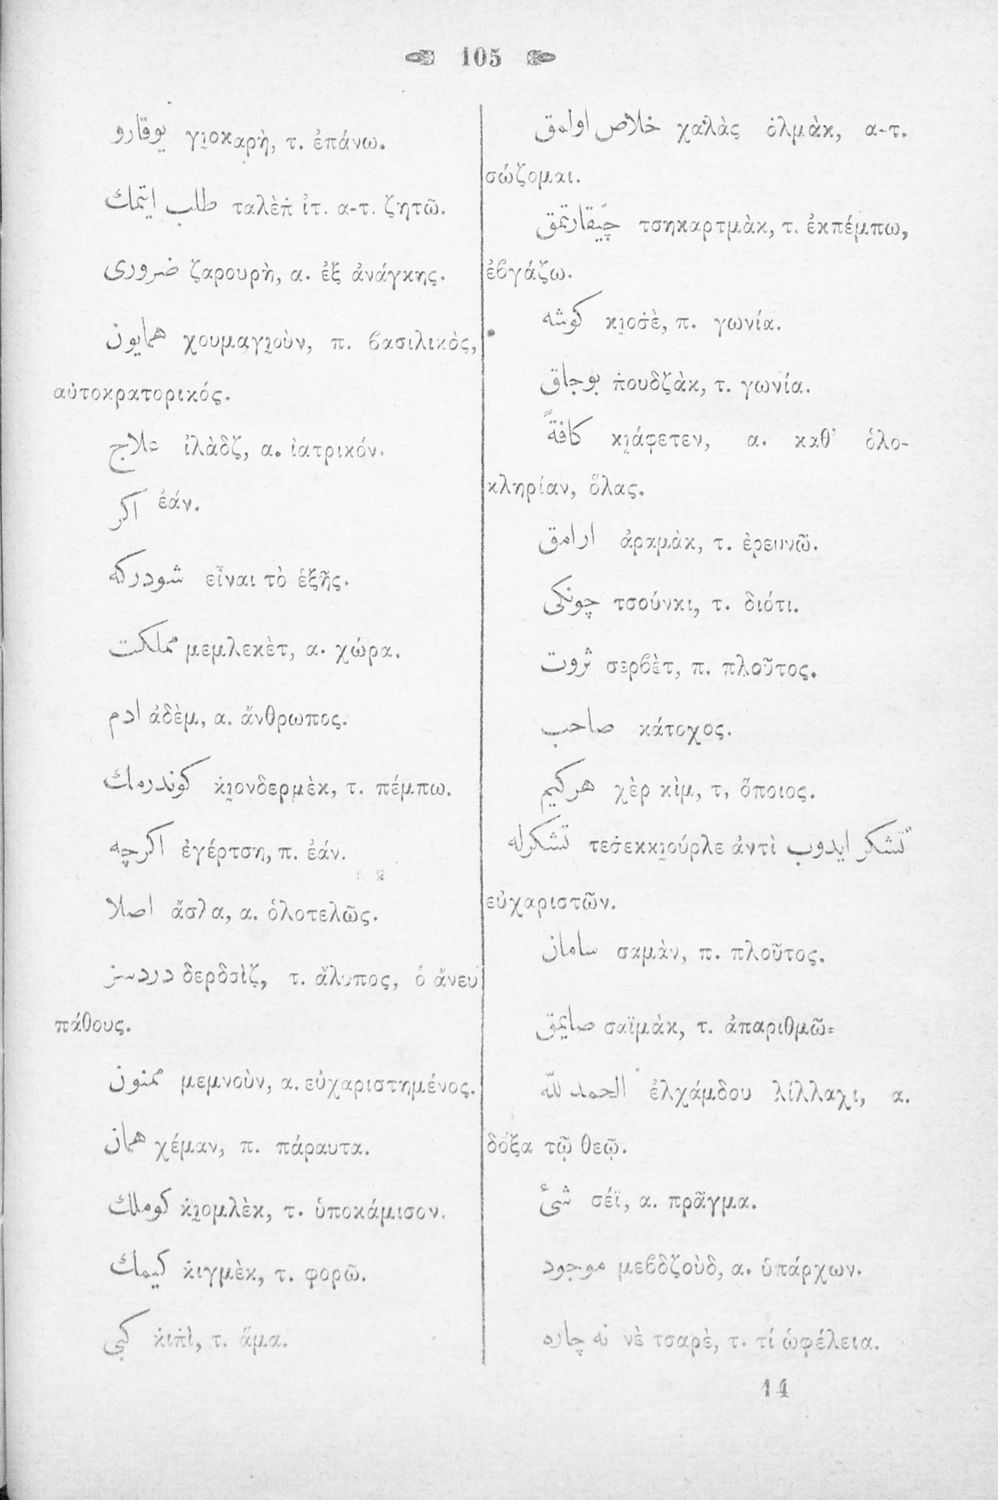 105
يوقارو γι̯οκαρὴ, τ. ἐπάνω.
طلب ايتمك ταλὲπ̇ ἰτ. α-τ. ζητῶ.
ضرورى ζαρουρὴ, α. ἐξ ἀνάγκης.
همايون χουμαγι̯οὺν, π. βασιλικὸς,
αὐτοκρατορικός.
علاج ἰλὰδζ, α. ἰατρικόν.
اكر ἐάν.
شودركه εἶναι τὸ ἑξῆς.
مملكت μεμλεκὲτ, α. χώρα.
ادم ἀδὲμ, α. ἄνθρωπος.
كوندرمك κ̇ι̯ονδερμὲκ, τ. πέμπω.
اكرچه ἐγέρτση, π. ἐάν.
اصلا ἄσλα, α. ὁλοτελῶς.
دردسز δερδσὶζ, τ. ἄλυπος, ὁ ἄνευ
πάθους.
ممنون μεμνοὺν, α. εὐχαριστημένος.
همان χέμαν, π. πάραυτα.
كوملك κ̇ι̯ομλὲκ, τ. ὑποκάμισον.
كيمك κ̇ιγμὲκ, τ. φορῶ.
كبى κ̇ιπ̇ὶ, τ. ἅμα.
خلاص اولمق χαλὰς ὀλμὰκ, α-τ.
σώζομαι.
چيقارتمق τσηκαρτμὰκ, τ. ἐκπέμπω,
ἐβγάζω.
كوشه κι̯οσ̇ὲ, π. γωνία.
بوجاق π̇ουδζὰκ, τ. γωνία.
كافةً κι̯άφετεν, α. καθ' ὁλο-
κληρίαν, ὅλας.
ارامق ἀραμὰκ, τ. ἐρευνῶ.
چونكى τσούνκι, τ. διότι.
ثروت σερβὲτ, π. πλοῦτος.
صاحب κάτοχος.
هركيم χὲρ κὶμ, τ, ὅποιος.
تشكرله τεσ̇εκκι̯ούρλε ἀντὶ تشكر ايدوب
εὐχαριστῶν.
سامان σαμὰν, π. πλοῦτος.
صايمق σαϊμὰκ, τ. ἀπαριθμῶ.
الحمد لله ἐλχάμδου λίλλαχι, α.
δόξα τῷ θεῷ.
شئ σέϊ, α. πρᾶγμα.
موجود μεβδζοὺδ, α. ὑπάρχων.
نه چاره νὲ τσαρὲ, τ. τί ὠφέλεια.
14